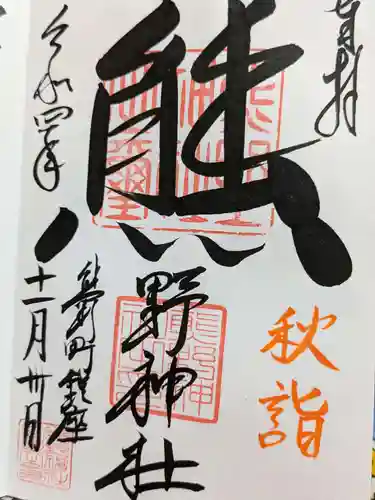 奉拝
秋詣
熊
野神社
熊野町鎮座
令和四年
十一月卅日